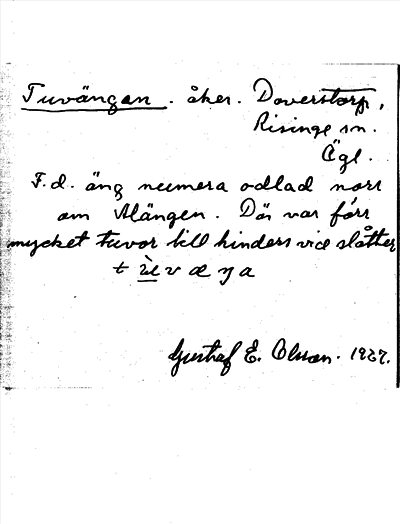 Tuvängan. åker. Doverstorp,
Risinge sn.
Ögl.
F.d. äng numera odlad norr
om Mängen. Där var förr
mycket tuvor till hinders vid slåtter
Gustaf E. Olsson. 1927.